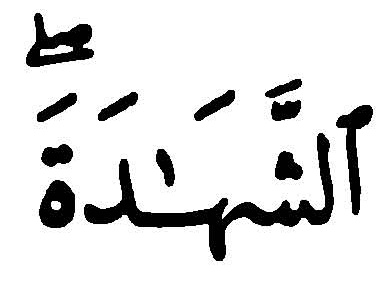 الشَّهَٰدَةَ ؕ